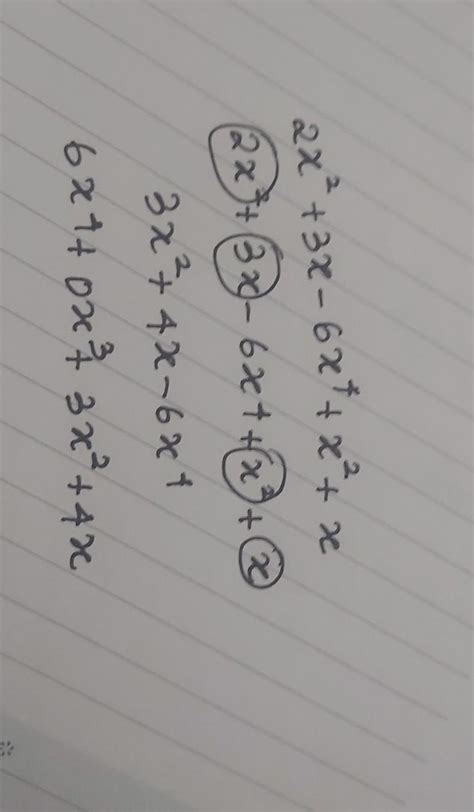 2x² + 3x - 6x⁴ + x² + x
2x² + 3x - 6x⁴ + x² + x
3x² + 4x - 6x⁴
6x⁴ + 0x³ + 3x² + 4x